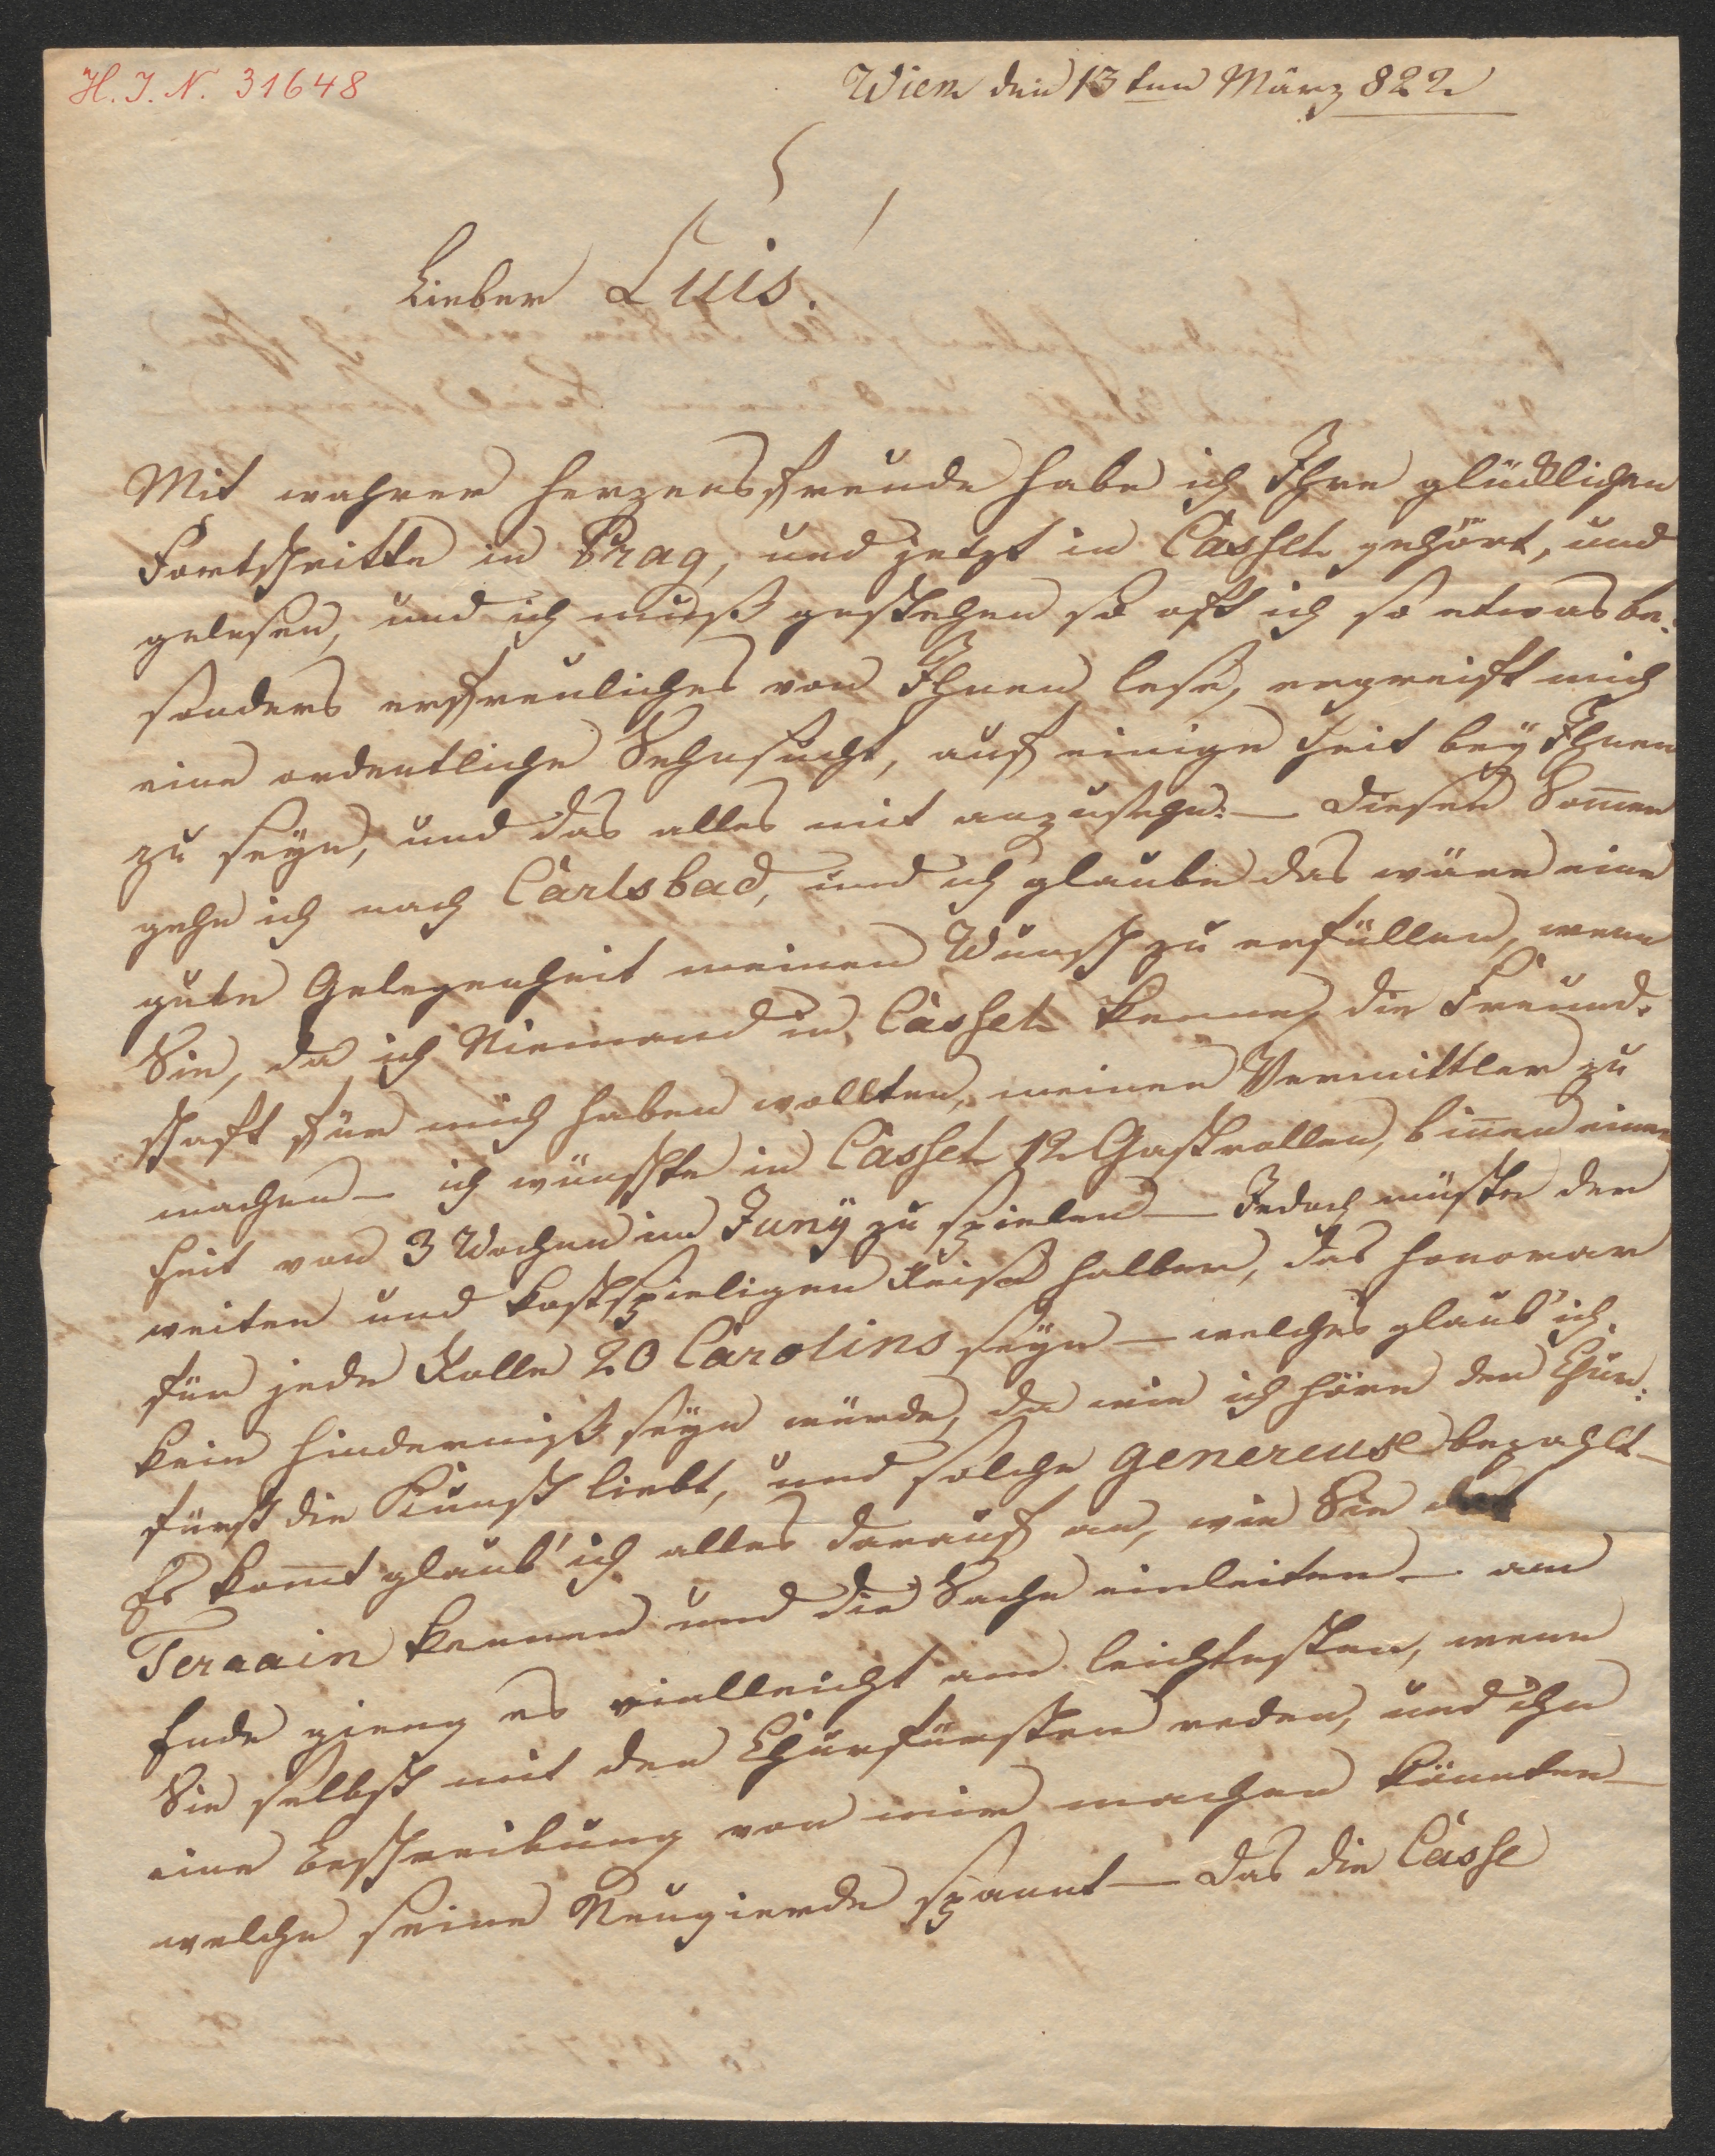 H. I. N. 31648
Wien den 13ten März 822
Lieber Luis!
Mit wahrer Herzensfreude habe ich Ihre glücklichen
Fortschritte in Prag, und jetzt in Cassel gehört, und
gelesen, und ich muß gestehen so oft ich so etwas be:
sonders erfreuliches von Ihnen lese, ergreift mich
eine ordentliche Sehnsucht, auf einige Zeit bey Ihnen
zu seyn, und das alles mit anzusehn. — Diesen Som̅er
gehe ich nach Carlsbad, und ich glaube das wäre eine
gute Gelegenheit meinen Wunsch zu erfüllen, wenn
Sie, da ich Niemand in Cassel kenne, die Freund:
schaft für mich haben wollten, meinen Vermittler zu
machen — ich wünschte in Cassel 12 Gastrollen, binnen einer
Zeit von 3 Wochen im Juny zu spielen — Jedoch müßte der
weiten und kostspieligen Reise halber, das Honorar
für jede Rolle 20 Carolins seyn — welches glaub' ich
kein Hinderniß seyn würde, da wie ich höre der Chur:
fürst die Kunst liebt, und solche genereuse bezahlt —
Es kom̅t glaub' ich alles darauf an, wie Sie das
Terrain kennen und die Sache einleiten — am
Ende gieng es vielleicht am leichtesten, wenn
Sie selbst mit den Churfürsten reden, und ihm
eine Beschreibung von mir machen könnten —
welche seine Neugierde spannt — Das die Casse